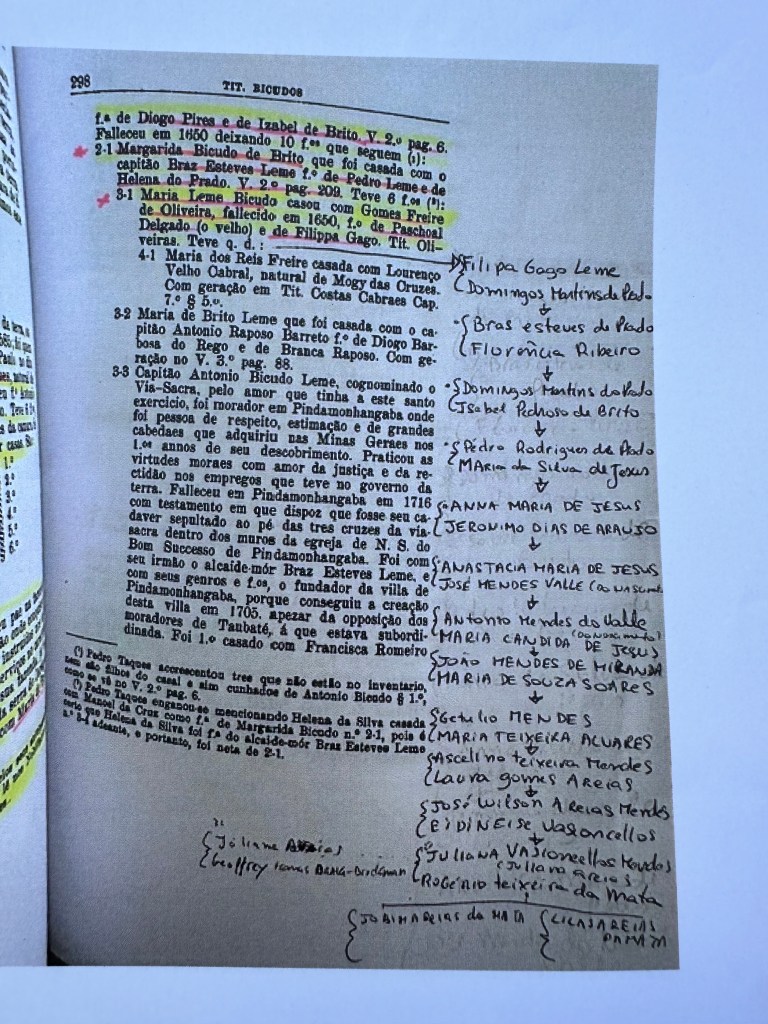 298
TIT. BICUDOS
f.ª de Diogo Pires e de Izabel de Brito, V. 2.º pag. 6.
Falleceu em 1650 deixando 10 f.ºs que seguem (¹):
2-1 Margarida Bicudo de Brito que foi casada com o
capitão Braz Esteves Leme f.º de Pedro Leme e de
Helena do Prado. V. 2.º pag. 209. Teve 6 f.ºs (²):
3-1 Maria Leme Bicudo casou com Gomes Freire
de Oliveira, fallecido em 1650, f.º de Paschoal
Delgado (o velho) e de Filippa Gago. Tit. Oli-
veiras. Teve q. d. :
4-1 Maria dos Reis Freire casada com Lourenço
Velho Cabral, natural de Mogy das Cruzes.
Com geração em Tit. Costas Cabraes Cap.
7.º § 5.º.
3-2 Maria de Brito Leme que foi casada com o ca-
pitão Antonio Raposo Barreto f.º de Diogo Bar-
bosa do Rego e de Branca Raposo. Com ge-
ração no V. 3.º pag. 88.
3-3 Capitão Antonio Bicudo Leme, cognominado o
Via-Sacra, pelo amor que tinha a este santo
exercicio, foi morador em Pindamonhangaba onde
foi pessoa de respeito, estimação e de grandes
cabedaes que adquiriu nas Minas Geraes nos
1.ºs annos de seu descobrimento. Praticou as
virtudes moraes com amor da justiça e da re-
ctidão nos empregos que teve no governo da
terra. Falleceu em Pindamonhangaba em 1716
com testamento em que dispoz que fosse seu ca-
daver sepultado ao pé das tres cruzes da via-
sacra dentro dos muros da egreja de N. S. do
Bom Successo de Pindamonhangaba. Foi com
seu irmão o alcaide-mór Braz Esteves Leme, e
com seus genros e f.ºs, o fundador da villa de
Pindamonhangaba, porque conseguiu a creação
desta villa em 1705. apezar da opposição dos
moradores de Taubaté, á que estava subordi-
dinada. Foi 1.º casado com Francisca Romeiro
(¹) Pedro Taques accrescentou tres que não estão no inventario,
nem são filhos do casal e sim cunhados de Antonio Bicudo § 1.º,
como se vê no V. 2.º pag. 6.
(²) Pedro Taques enganou-se mencionando Helena da Silva casada
com Manoel da Cruz como f.ª de Margarida Bicudo n.º 2-1, pois é
certo que Helena da Silva foi f.ª do alcaide-mór Bras Esteves Leme
n.º 3-4 adeante, e portanto, foi neta de 2-1.
Filipa Gago Leme
Domingos Martins de Prado
Bras esteves de Prado
Florência Ribeiro
Domingos Martins do Prado
Isabel Pedroso de Brito
Pedro Rodrigues de Prado
MARIA da Silva de Jesus
ANNA MARIA DE JESUS
JERONIMO DIAS DE ARAUJO
ANASTACIA MARIA DE JESUS
JOSÉ MENDES VALLE
Antonio Mendes do Valle
MARIA CANDIDA DE JESUS
JOÃO MENDES DE MIRANDA
MARIA DE SOUZA SOARES
Getulio MENDES
MARIA TEIXEIRA ALVARES
Ascelino teixeira Mendes
Laura gomes AReias
José Wilson AReias Mendes
EIDINEISE Vasconcellos
JULIANA VASConcellos Mendes
(Juliana areias)
ROGÉRIO teixeira da Mata
Juliana Areias
Geoffrey
JOBIM AREIAS da MATA
LILAS AREIAS
DA MATA